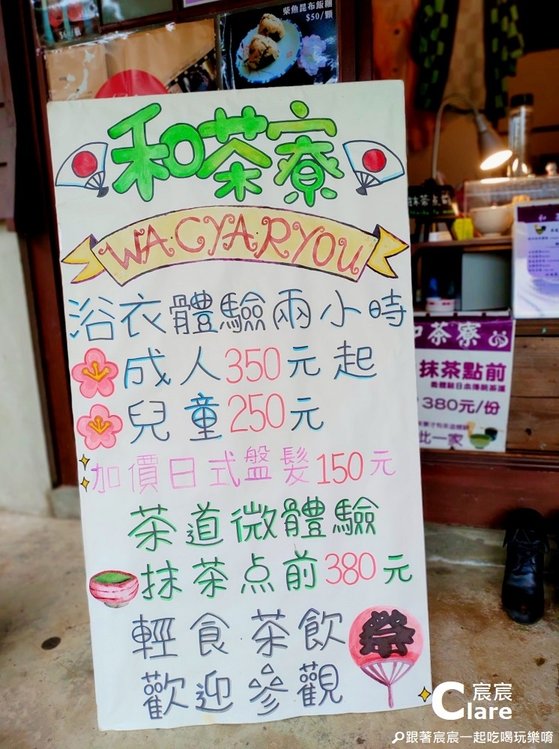 柴魚昆布飯糰
$50/顆
和茶寮
WA.CYA.RYOU
浴衣體驗兩小時
成人350元起
兒童250元
加價日式盤髮150元
茶道微體驗
抹茶点前380元
輕食茶飲
歡迎參觀
祭
茶寮
抹茶點前
380元/份
此一家
宸宸
Clare
跟著宸宸一起吃喝玩樂唷